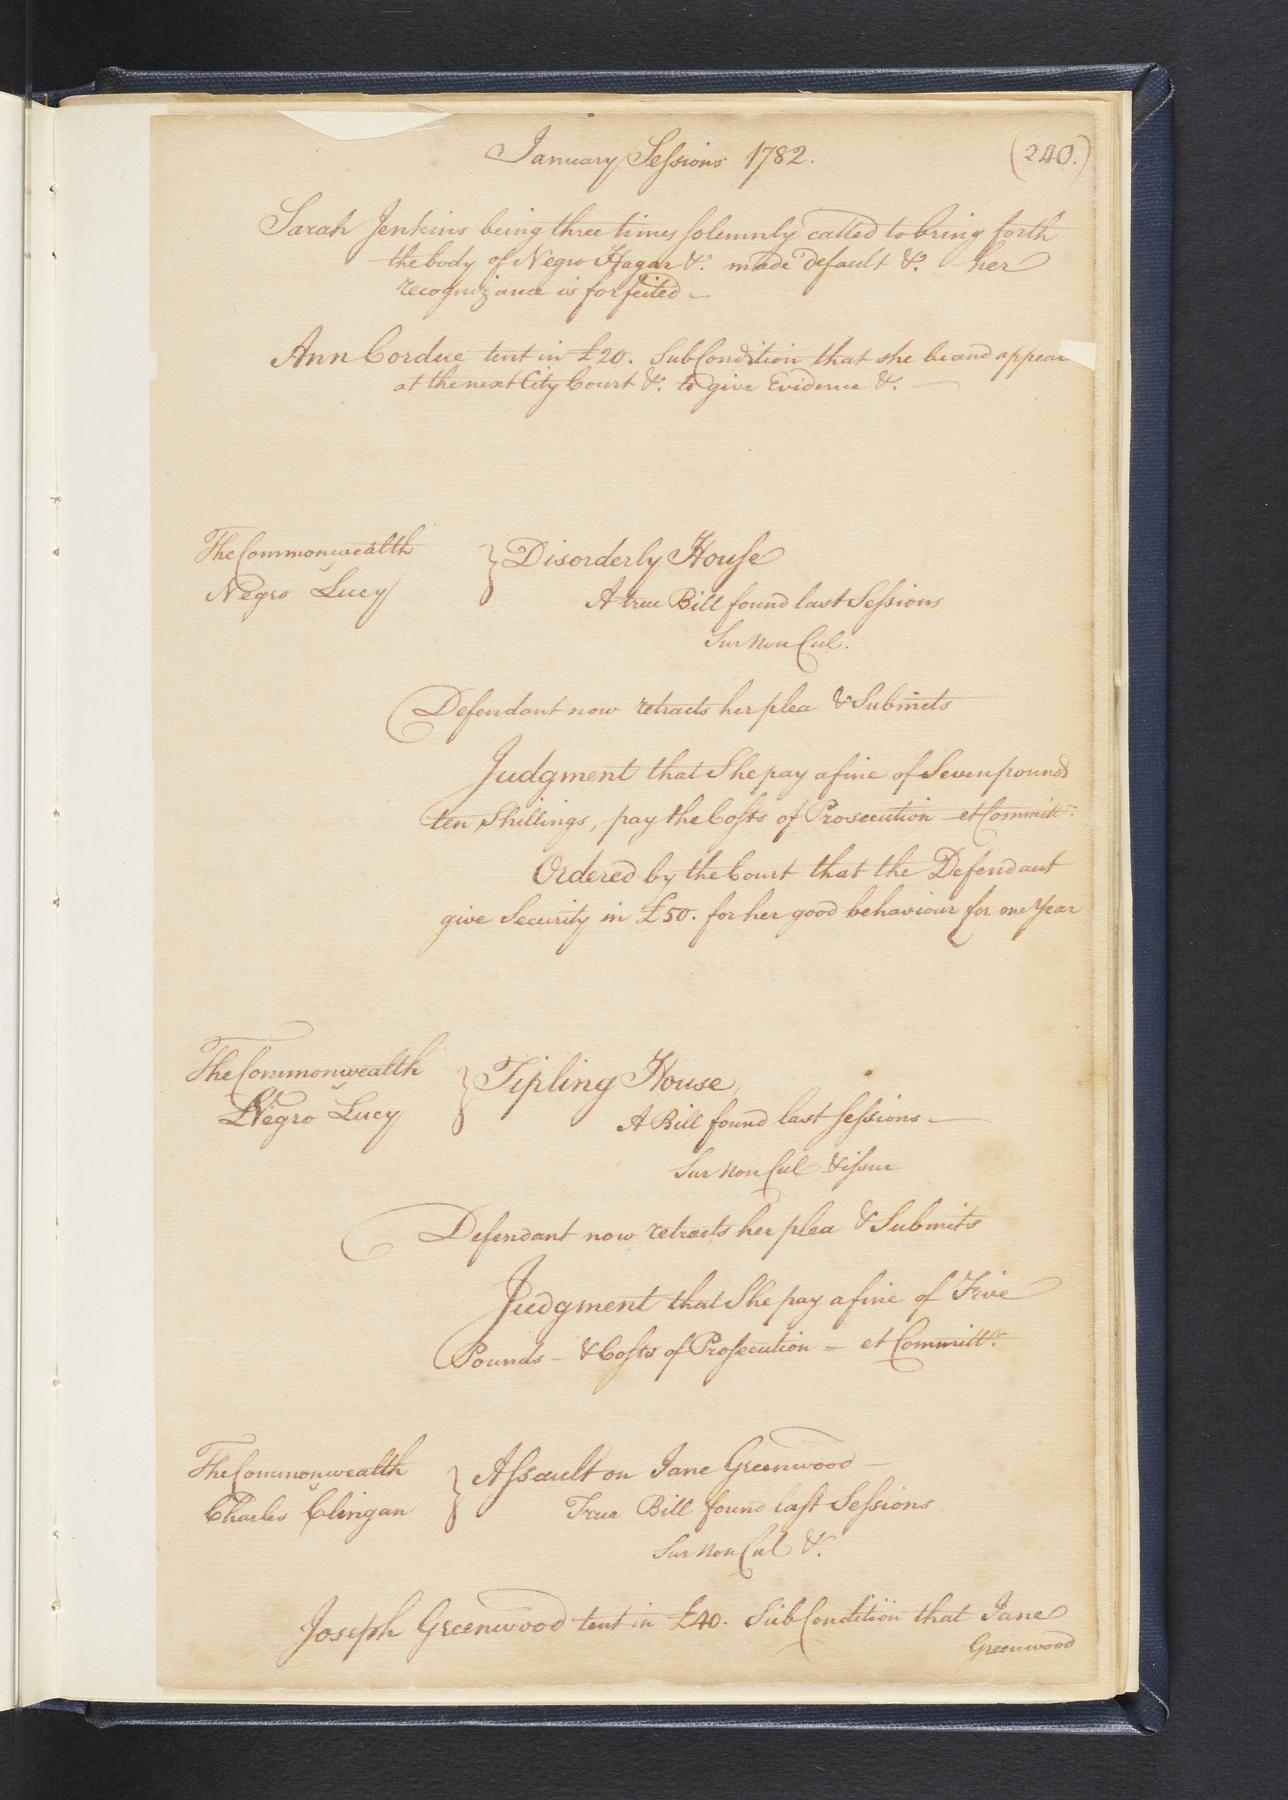 January Sessions 1782.
(240.)
Sarah Jenkins being three times solemnly called to bring forth
the body of Negro Hagar &c. made default &c. her
recognizance is forfeited —
Ann Cordue tent in £20. Sub Condition that she be and appear
at the next City Court &c. to give Evidence &c. —
The Commonwealth
v
Negro Lucy
} Disorderly House
A true Bill found last Sessions
Sur Non Cul.
Defendant now retracts her plea & Submits
Judgment that She pay a fine of Seven pounds
ten Shillings, pay the Costs of Prosecution et Committr.
Ordered by the Court that the Defendant
give Security in £50. for her good behaviour for one Year
The Commonwealth
v
Negro Lucy
} Tipling House
A Bill found last Sessions —
Sur Non Cul & issue
Defendant now retracts her plea & Submits
Judgment that She pay a fine of Five
Pounds — & Costs of Prosecution — et Committr.
The Commonwealth
v
Charles Clingan
} Assault on Jane Greenwood —
True Bill found last Sessions
Sur Non Cul &c.
Joseph Greenwood tent in £40. Sub Condition that Jane
Greenwood